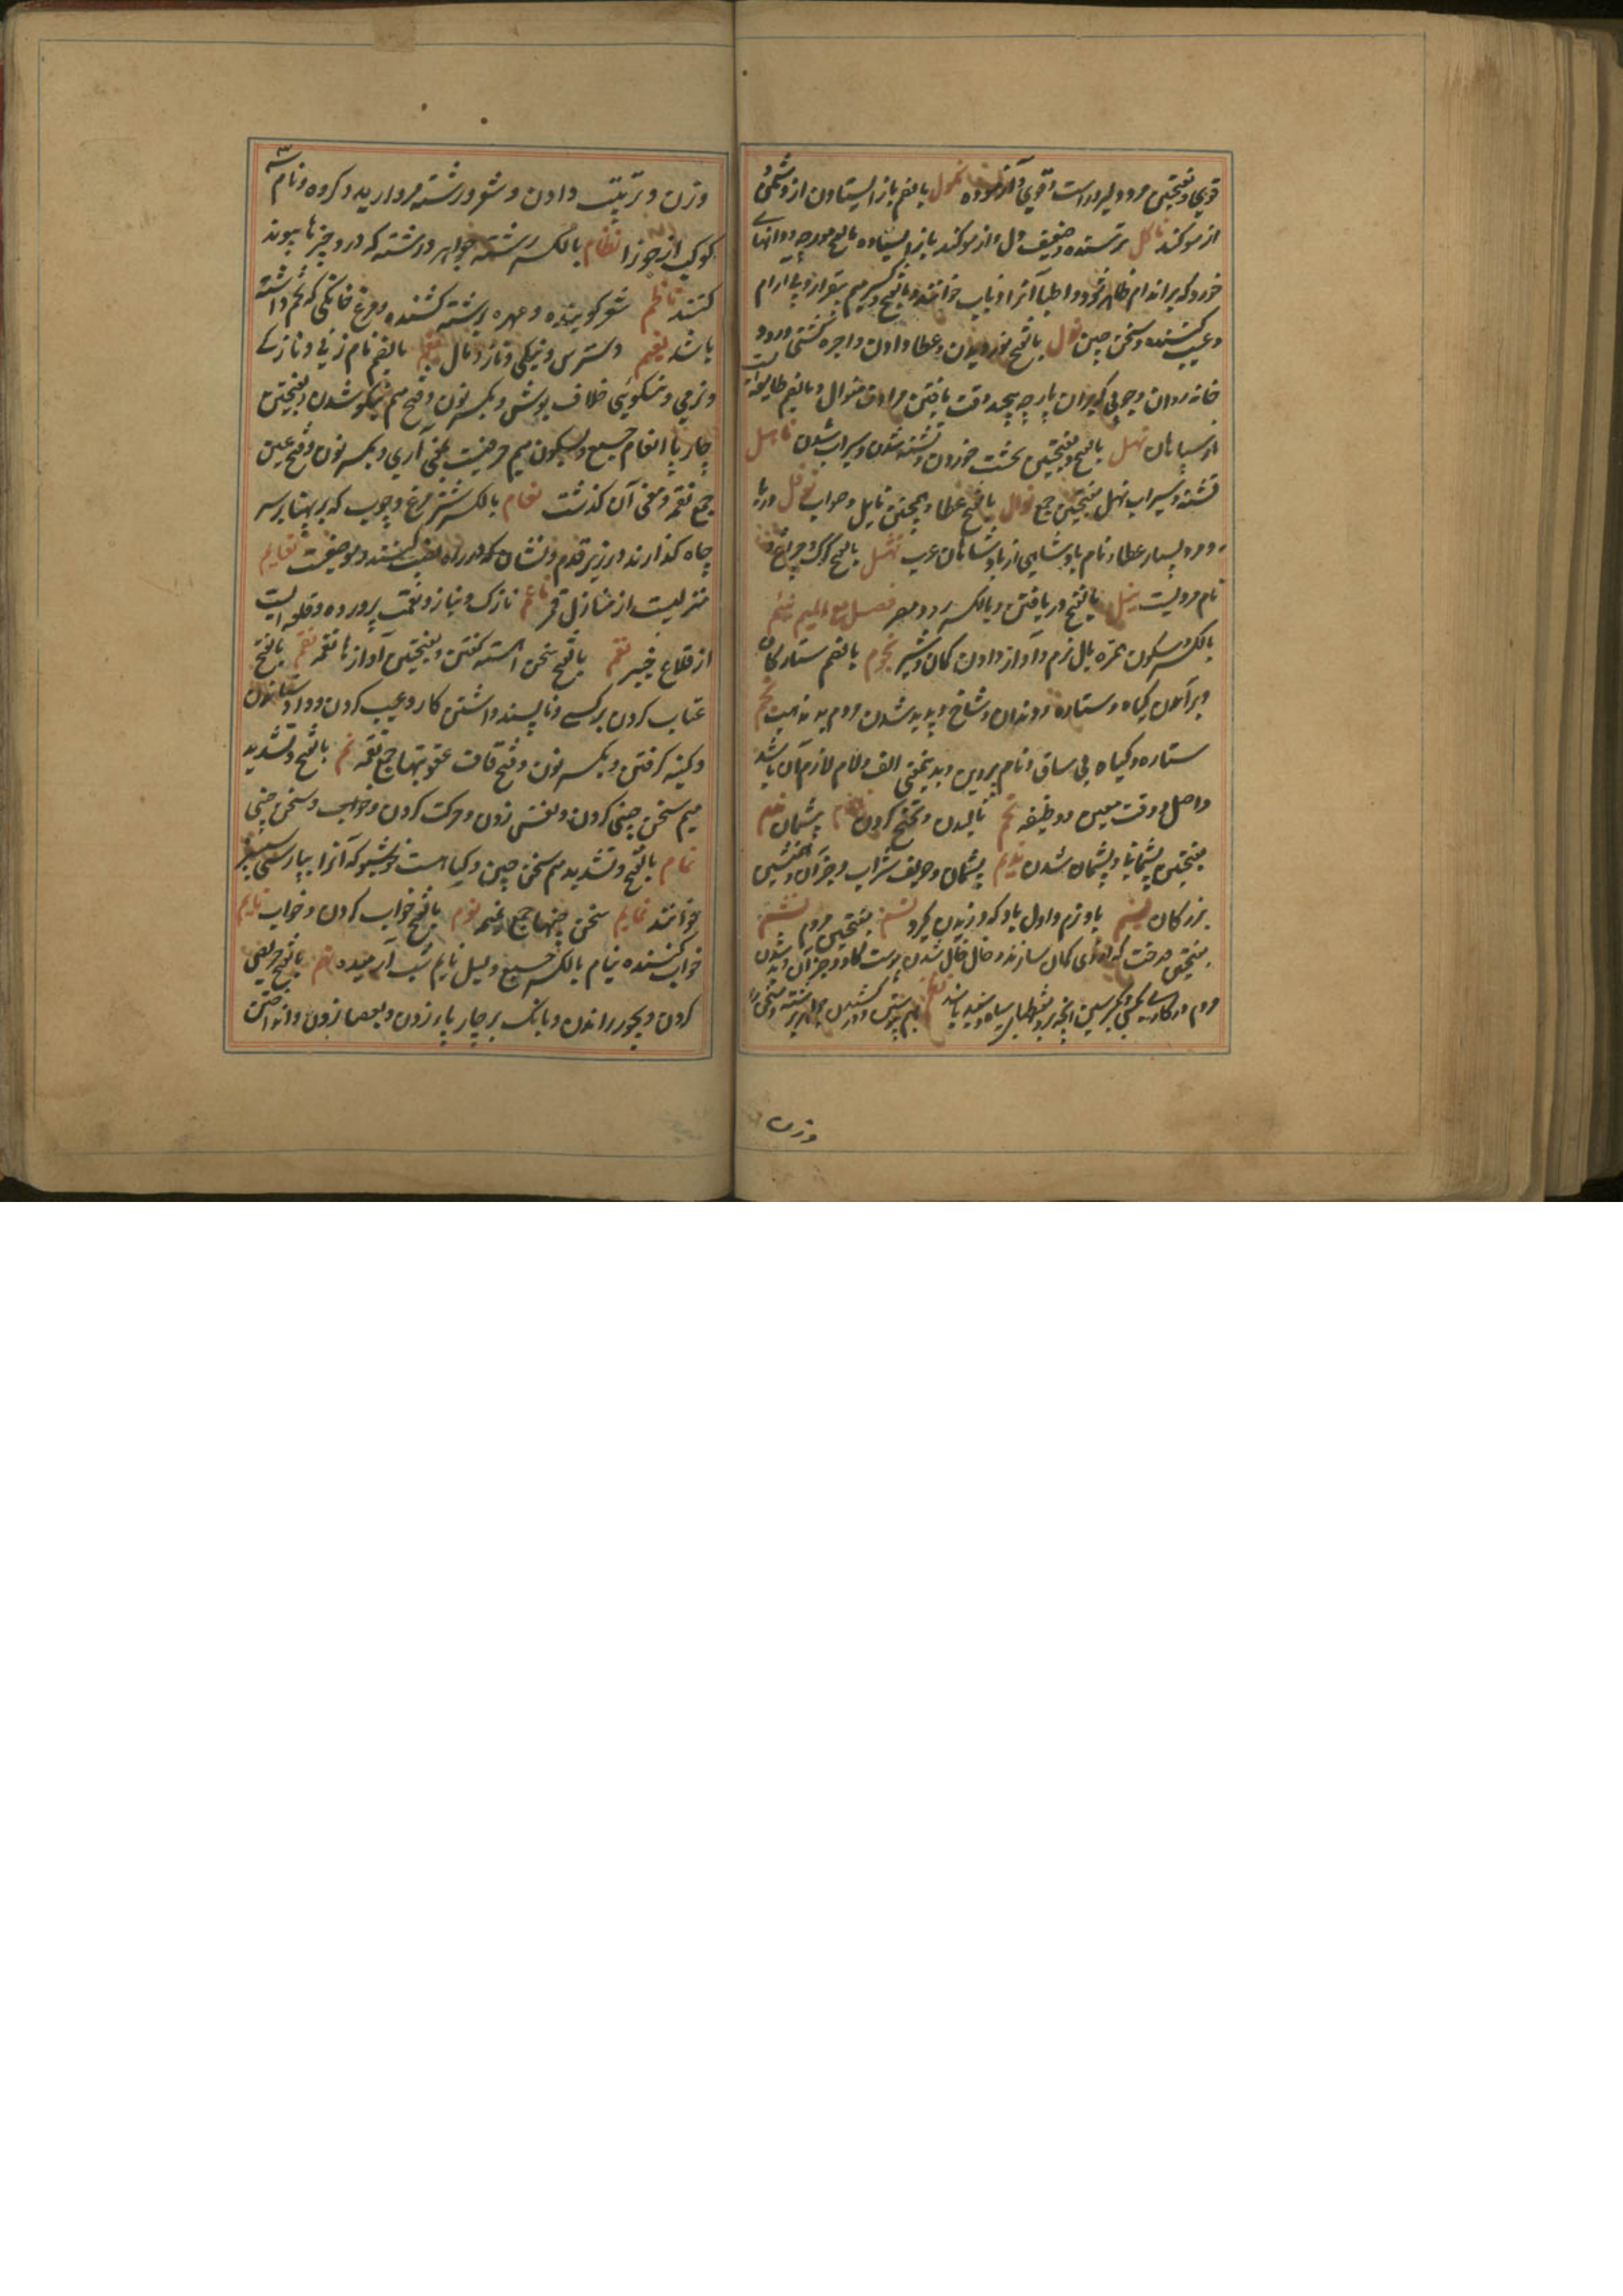 قوی و بفتحتین مرد دلیر و راست و قوی و آزموده نکول بالضم باز ایستادن از دشمن و
از سوکند ناکل ترسنده و ضعیف دل و از سوکند باز ایستاده بالفتح مورچه و دانهای
خورد که بر اندام ظاهر شود و اطبا آنرا ذباب خوانند و بالفتح و کسر میم بیقرار و بی آرام
و عیب کننده و سخن چین نول بالفتح نوردیدن و عطا دادن و اجره کشتی و رود
خانه روان و چوبی که بران پارچه پیچند وقت یافتن مرادف منوال و بالضم طایفه است
از سپاهان نهل بالفتح و بفتحتین نخست خوردن و تشنه شدن و سیراب شدن ناهل
تشنه و سیراب نهل بفتحتین جمع نوال بالفتح عطا و همچنین نایل و صواب نوفل دریا
و مرد بسیار عطا و نام پادشاهی از پادشاهان عرب نهشل بالفتح کرک و چرغ و
نام مردیست نیل بالفتح دریافتن و بالکسر رود مصر فصل مع المیم نئم
بالکسر و سکون همزه بال نرم و آواز دادن کمان و شیر نجوم بالضم ستارکان
و برآمدن کیاه و ستاره و دندان و شاخ و پدید شدن مردم بد مذهب نجم
ستاره و کیاه بی ساق و نام پروین و بدینمعنی الف و لام لازم آن باشد
و اصل و وقت معین و وظیفه نحم نالیدن و تنحنح کردن نادم پشیمان ندم
بفتحتین پشیمانی و پشیمان شدن ندیم پشیمان و حریف شراب و جز آن و همنشین
بزرکان نسیم باد نرم و اول باد که وزیدن کیرد نسم بفتحتین مردم نشم
بفتحتین درخت که ازوی کمان سازند و خال خال شدن پوست کاو و جز آن و بد شدن
مردم در کاری نظم بهم پیوستن و در کشیدن جواهر برشته و سخن را
وزن
وزن و ترتیب دادن و شعر و رشته مروارید و کروه و نام سه
کوکب از جوزا نظام بالکسر رشته جواهر و رشته که در و چیزها پیوند
کنند ناظم شعر کوینده و مهره برشته کشنده و مرغ خانکی که تخم داشته
باشد نعیم دسترس و نیکی و ناز و مال نعم بالضم نام زنی و نازکی
و نرمی و نیکویی خلاف بوس و بکسر نون و فتح میم نیکو شدن و بفتحتین
چارپا انعام جمع و بسکون میم حرفیست بمعنی آری و بکسر نون و فتح عین
جمع نعمة و معنی آن کذشت نعام بالکسر شتر مرغ و چوب که بر پهنا بر سر
چاه کذارند و زیر قدم و نشان که در راه نصب کنند و موضعیست نعایم
منزلیست از منازل قمر ناعم نازک و بناز و نعمت پرورده و قلعه ایست
از قلاع خیبر نغم بالفتح سخن آهسته کفتن و بفتحتین آوازها نغمه نقم بالفتح
عتاب کردن بر کسی و ناپسند داشتن کار و عیب کردن و داد ستدن
و کینه کرفتن و بکسر نون و فتح قاف عقوبتها جمع نقمه نم بالفتح و تشدید
میم سخن چینی کردن و نفس زدن و حرکت کردن و خواب و سخن چین
نمام بالفتح و تشدید میم سخن چین و کیاهست خوشبو که آنرا بپارسی سیسنبر
خوانند نمایم سخن چینیها جمع نمیمه نوم بالفتح خواب کردن و خواب نایم
خواب کننده نیام بالکسر جمع و لیل نایم شب آرمیده نهم بالفتح حریصی
کردن و بجور راندن و بانک بر چارپا زدن و بعصا زدن و انداختن